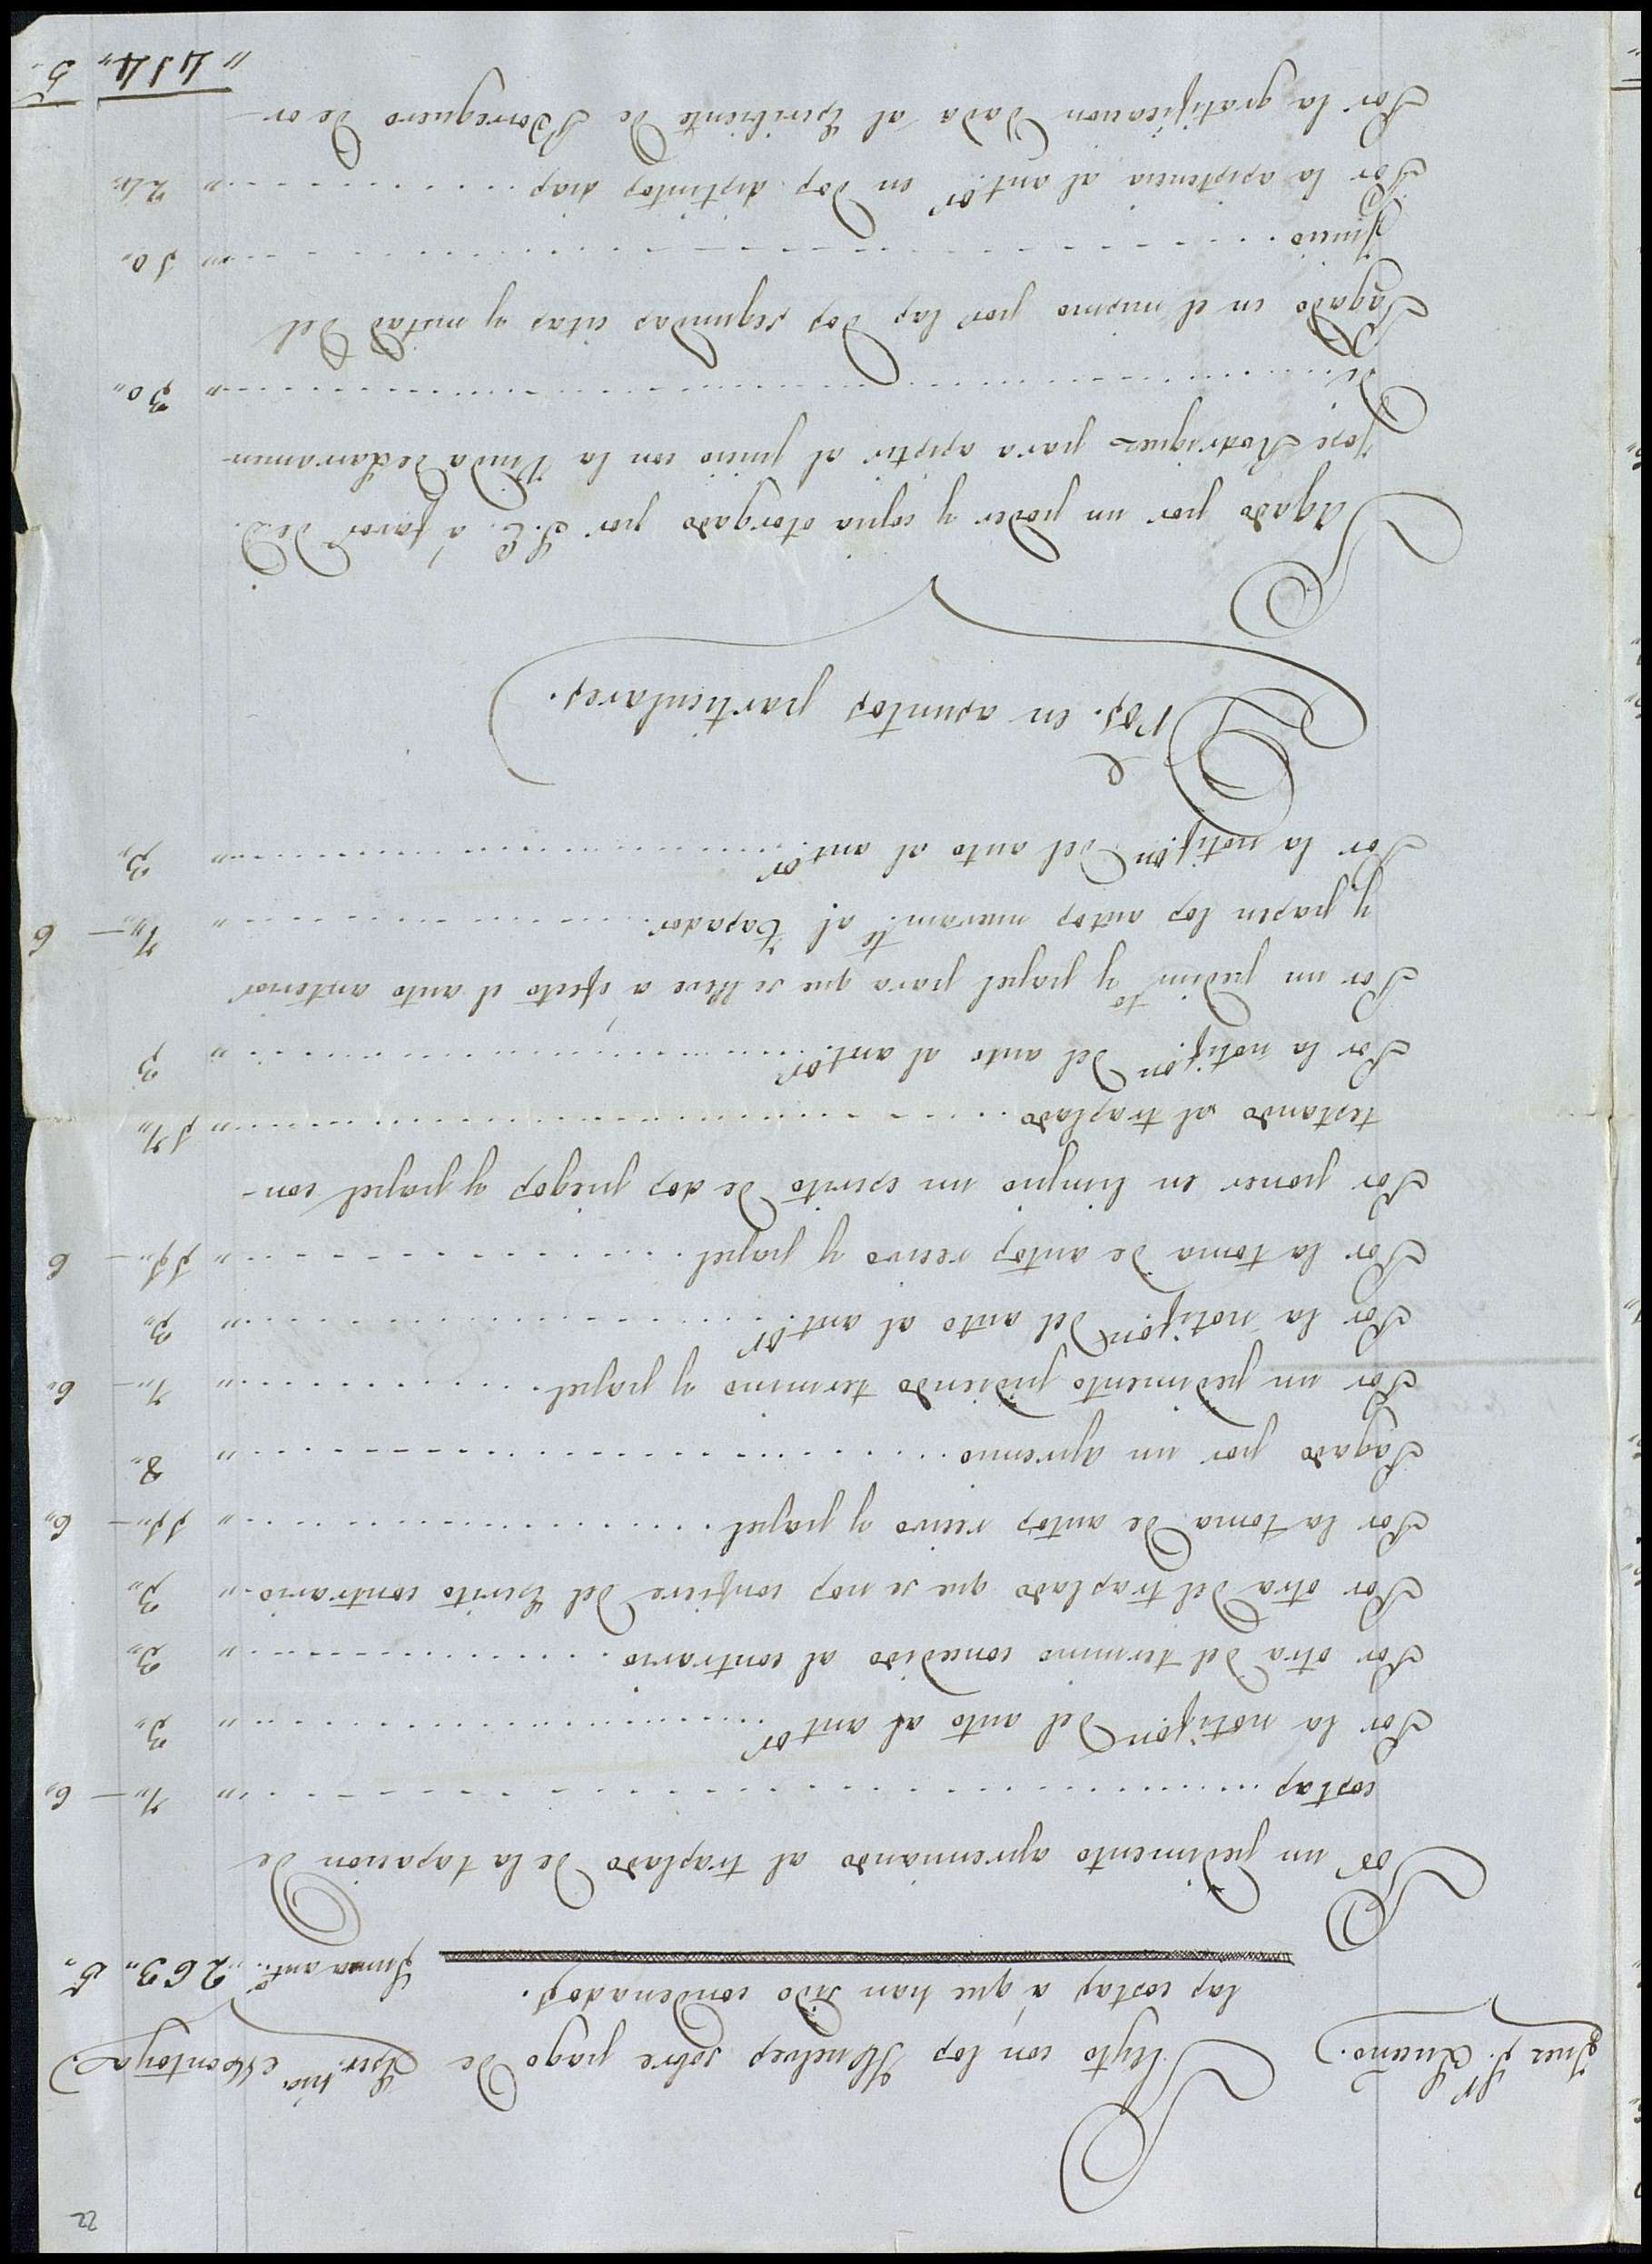 22
Juez p. Sr. Luceño.
Pleyto con los Huelves sobre pago de
Escr.nia Montoya.
las costas á que han sido condenados.
Suma ant.or „ 263„ 5„
Por un pedimento apremiando al traslado de la tasacion de
costas „ 7„— 6„
Por la notif.on del auto al ant.or „ 3„
Por otra del termino concedido al contrario „ 3„
Por otra del traslado que se nos confiere del Escrito contrario „ 3„
Por la toma de autos recivo y papel „ 11„— 6„
Pagado por un apremio „ 8„
Por un pedimento pidiendo termino y papel „ 7„— 6„
Por la notif.on del auto al ant.or „ 3„
Por la toma de autos recivo y papel „ 11„— 6
Por poner en limpio un escrito de dos pliegos y papel con-
testando al traslado „ 17„
Por la notif.on del auto al ant.or „ 3
Por un pedim.to y papel para que se lleve á efecto el auto anterior
y pasen los autos nuevam.te al tasador „ 7„— 6
Por la notif.on del auto al ant.or „ 3„
Yd. en asuntos particulares.
Pagado por un poder y copia otorgado por S.E. á favor de D.
José Rodriguez para asistir al juicio con la Viuda de Larramen-
di „ 30„
Pagado en el mismo por las dos segundas citas y mitad del
Juicio „ 10„
Por la asistencia al ant.or en dos distintos dias „ 24„
Por la gratificacion dada al Escribiente de Borreguero de or-
„ 414„ 5„